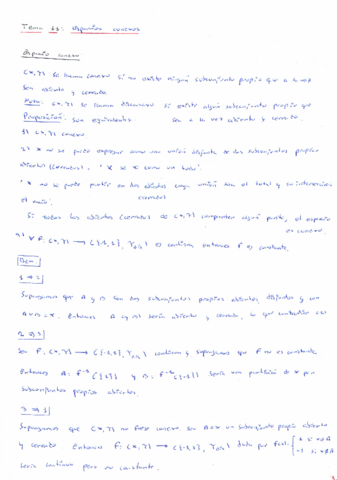 Tema 11: Espacios conexos
Espacio conexo
(X, τ) se llama conexo si no existe ningún subconjunto propio que a la vez
sea abierto y cerrado
Nota: (X, τ) se llama disconexo si existe algún subconjunto propio que
Proposición: Son equivalentes sea a la vez abierto y cerrado
1) (X, τ) conexo
2) X no se puede expresar como una unión disjunta de dos subconjuntos propios
abiertos (cerrados).
X no se puede partir en dos abiertos cuya unión sea el total y su intersección
(cerrados)
el vacío.
Si todos los abiertos (cerrados) de (X, τ) comparten algún punto, el espacio
es conexo
3) ∀ f: (X, τ) → ({-1, 1}, τ) es continua entonces f es constante.
Dem
1 ⇒ 2
Supongamos que A y B son dos subconjuntos propios abiertos, disjuntos y con
A ∪ B = X. Entonces A sería abierto y cerrado, lo que
2 ⇒ 3
Sea f: (X, τ) → ({-1, 1}, τ) continua y supongamos que f no es constante
Entonces A = f⁻¹({1}) y B = f⁻¹({-1}) sería una partición de X por
subconjuntos propios abiertos.
3 ⇒ 1
Supongamos que (X, τ) no fuese conexo sea A ⊂ X un subconjunto propio abierto
y cerrado Entonces f: (X, τ) → ({-1, 1}, τ) dada por f(x) = { 1 si x ∈ A
-1 si x ∉ A
sería continua pero no constante.